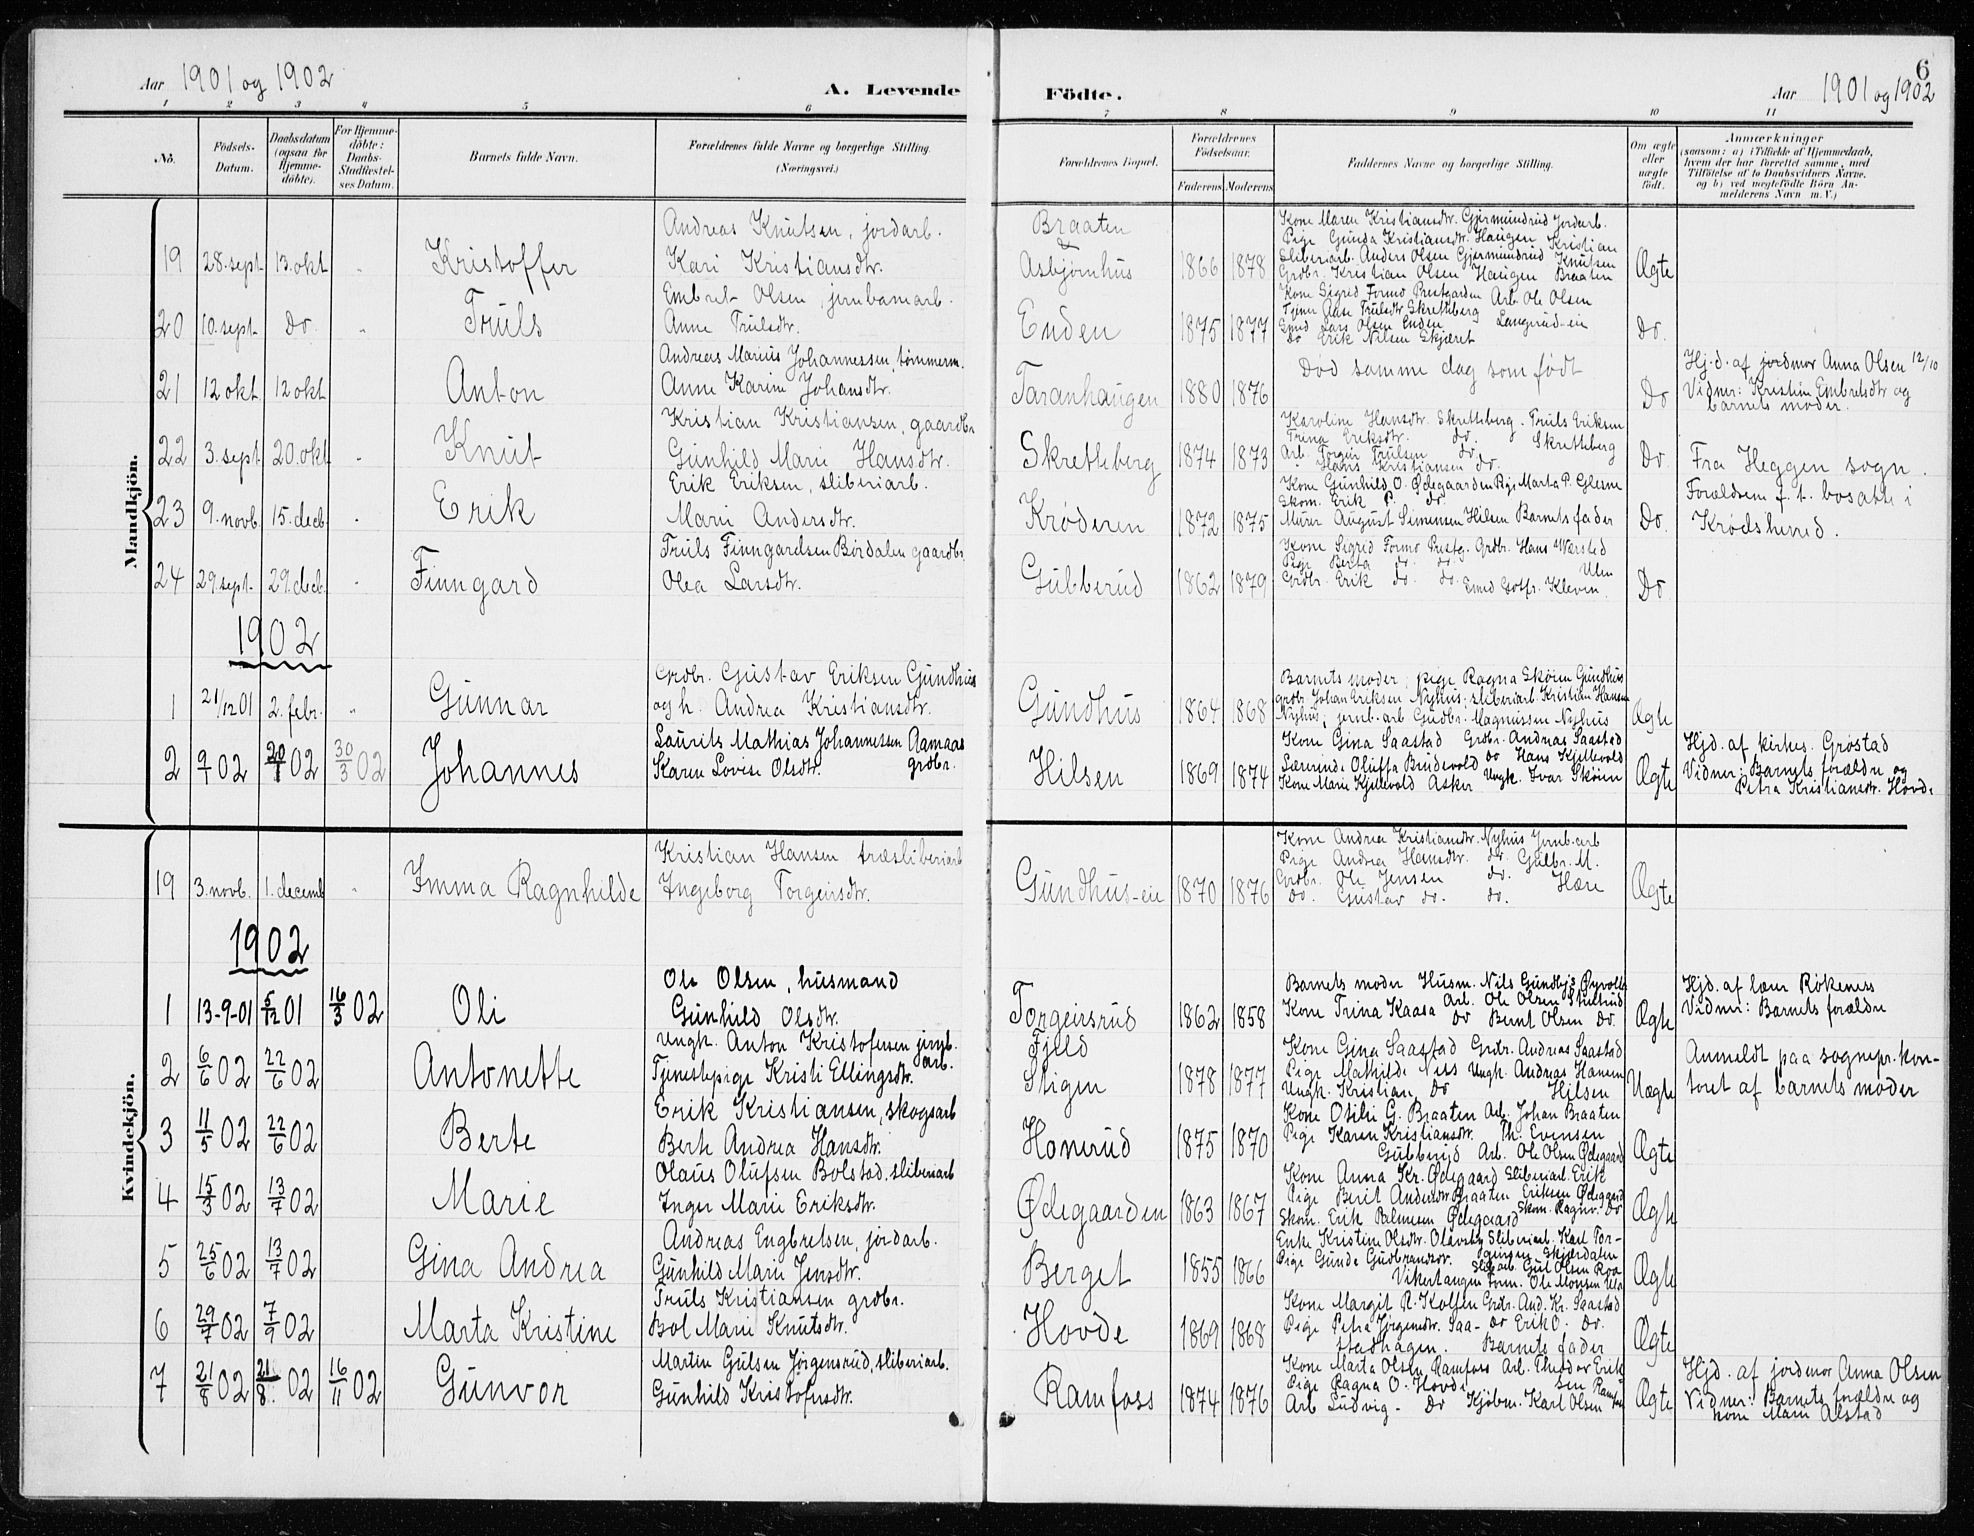 6
Aar 1901 og 1902
A. Levende Födte.
Aar 1901 og 1902
1 2 3 4 5 6 7 8 9 10 11
No. Födsels-Datum. Daabsdatum (ogsaa for Hjemme-döbte). For Hjemme-döbte: Daabs-Stadfæstel-ses Datum. Barnets fulde Navn. Forældrenes fulde Navne og borgerlige Stilling. (Næringsvei.) Forældrenes Bopæl. Forældrenes Födselsaar. Faderens Moderens Faddernes Navne og borgerlige Stilling. Om ægte eller uægte födt. Anmærkninger (saasom: a) i Tilfælde af Hjemmedaab, hvem der har forrettet samme, med Tilföielse af to Daabsvidners Navne. og b) ved uægtefödte Börn An-melderens Navn m. V.)
Mandkjön.
Andreas Knutsen, jordarb. Braaten Kone Maren Kristiansdtr. Gjermundrud Jordarb.
Pige Gunda Kristiansdtr. Haugen Kristian
19 28. sept 13. okt " Kristoffer Kari Kristiansdtr. Asbjørnhus 1866 1878 Sliberiarb. Anders Olsen Gjermundrud Knutsen Ægte
Grdbr. Kristian Olsen Haugen Braaten
Embret Olsen, jernbanearb. Kone Sigrid Formo Prestgarden Arb. Ole Olsen
20 10. sept. Do. " Truls Anne Trulsdtr. Enden 1875 1877 Tjener Aase Trulsdtr Skretteberg Langerud-eie Do.
Gmd Lars Olsen Enden
Do Erik Nilsen Skjæret
Andreas Marius Johannessen, tømmerm. Hj.d. af jordmor Anna Olsen 12/10
21 12 okt 12 okt Anton Anne Karine Johansdtr. Taranhaugen 1880 1876 Død samme dag som født Do Vidner: Kristine Embretsdtr og
barnets moder.
Kristian Kristiansen, gaardbr. Karoline Hansdtr. Skretteberg. Truls Eriksen
Trina Eriksdtr. do. Skretteberg
22 3. sept 20. okt " Knut Gunhild Marie Hansdtr. Skretteberg 1874 1873 Arb. Torger Trulsen do Do. Fra Heggen sogn.
" Hans Kristiansen do.
Erik Eriksen, sliberiarb. Kone Gunhild O. Ødegaarden Pige Marta P. Glesne Forældrene f. t. bosatte i
Skom. Erik P. do
23 9. novb. 15. decb. " Erik Marie Andersdtr. Krøderen 1872 1875 Murer August Simensen Hilsen Barnets fader Do. Krødsherred.
Truls Finngardsen Bordalen gaardbr. Kone Sigrid Formo Prestg. Grdbr. HansVærsted
Pige Berta do. do. Ulen
24 29. sept. 29. decb. " Finngard Olea Larsdtr. Gubberud 1862 1879 Grdbr. Erik do. do. Gmd Gotfr. Kleven. Do
1902
Grdbr. Gustav Eriksen Gundhus Barnets moder; pige Ragna Skøien Gundhus
grdbr. Johan Eriksen Nyhus; sliberiarb. Kristian Hansen
1 21/12 01 2. febr. " Gunnar og h. Andrea Kristiansdtr. Gundhus 1864 1868 Nyhus; jernb.arb Gudbr. Magnussen Nyhus Ægte
Laurits Mathias Johannessen Aamaas Kone Gina Saastad Grdbr. Andreas Saastad Hjd. af kirkes. Grøstad
grdbr.
2 9/1 02 20/1 02 30/3 02 Johannes Karen Lovise Olsdtr. Hilsen 1869 1874 Lærerinde Oluffa Brudevold do Hans Kjellevold Ægte Vidner: Barnets forældre og
Kone Marie Kjellevold Asker Ungk. Ivar Skøien Petra Kristiansdtr. Hovde
Kvindekjön.
Kristian Hansen træsliberiarb Kone Andrea Kristiansdtr. Nyhus Jernb.arb
Pige Andrea Hansdtr. do. Gulbr. M.
19 3. novb. 1. decemb " Imma Ragnhilde Ingeborg Torgeirsdtr. Gundhus-eie 1870 1876 Grdbr. Ole Jensen do. Hære Ægte
Do. Gustav do. do.
1902
Ole Olsen, husmand Barnets moder Husm. Nils Gundbj. Hjd. af lærer Røkenes
1 13-9-01 5/12 01 16/3 02 Oli Gunhild Olsdtr. Torgeirsrud 1862 1858 Kone Trina Kaasa Arb. Ole Olsen Skulerud Ægte Vidner: Barnets forældre
do Bernt Olsen do.
Ungk. Anton Kristofersen jernb. arb. Fjeld Kone Gina Saastad Grdbr. Andreas Saastad Anmeldt paa sognepr.kon-
2 6/6 02 22/6 02 Antonette Tjenestepige Kristi Ellingsdtr. Stigen 1878 1877 Pige Mathilde Nils Ungk. Andreas Hansen Uægte toret af barnets moder
Ungk. Kristian do Hilsen
Erik Kristiansen, skogsarb Kone Otilie G. Braaten Arb. Johan Braaten
3 11/5 02 22/6 02 Berte Berte Andrea Hansdtr. Honerud 1875 1870 Pige Karen Kristiansdtr. Th. Evensen Ægte
Gubberud Arb. Ole Olsen Ødegaard
Olaus Olufsen Bolstad, sliberiarb Kone Anna Kr. Ødegaard Sliberiarb. Erik
4 15/3 02 13/7 02 Marie Inger Marie Eriksdtr. Ødegaarden 1863 1867 Pige Berit Andersdtr Braaten Eriksen Ødegaard Ægte
Skom. Erik Palmesen Ødegaard Skom. Ragnv. do
Andreas Engbretsen, jordarb. Enke Kristine Olsdtr. Olavsby Sliberiarb. Karl Tor-
5 25/6 02 13/7 02 Gina Andrea Gunhild Marie Jensdtr. Berget 1855 1866 Pige Gunde Gudbrandsdr. geirsen Skjerdalen Ægte
Slibarb Gul Olsen Roa
Vikertangen Form. Ole Monsen Ula
Truls Kristiansen grdbr. Kone Margit R. Kolsen Grdbr. And. Kr. Saastad
6 29/7 02 7/9 02 Marta Kristine Bol Marie Knutsdtr. Hovde 1869 1868 Pige Petra Jørgensdtr. Saa- do Erik O. do. Ægte
stadhagen. Barnets fader
Martin Gulsen Jørgensrud, sliberiarb. Kone Marta Olsen Ramfoss Arb. Theodor Erik- Hjd. af jordmor Anna Olsen
7 21/8 02 21/8 02 16/11 02 Gunvor Gunhild Kristofersdtr. Ramfoss 1874 1876 Pige Ragna O. Hovde sen Ramfoss Ægte Vidner: Barnets forældre og
Arb Ludvig - do Kjøbm. Karl Olsen kone Marie Alstad